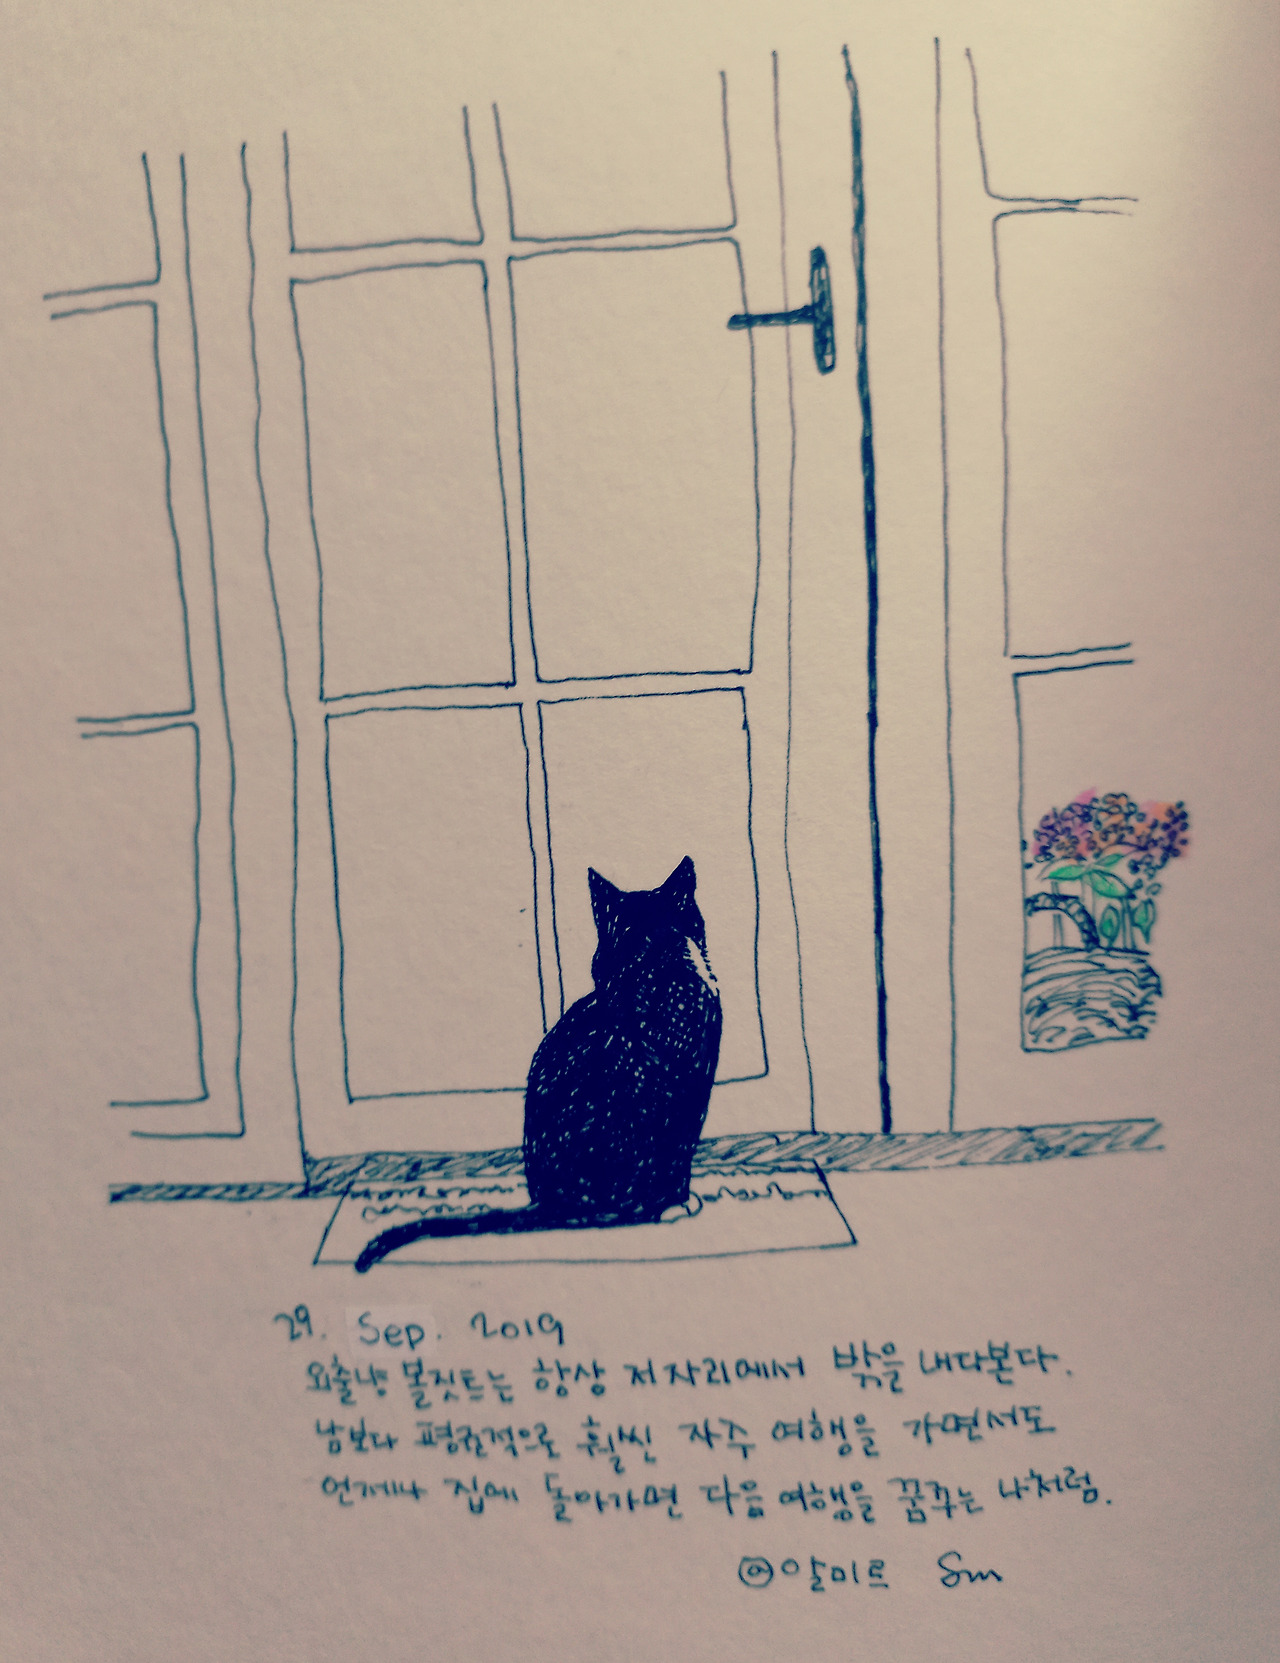 29. Sep. 2019
외출냥 볼짓트는 항상 저 자리에서 밖을 내다본다.
남보다 평균적으로 훨씬 자주 여행을 가면서도
언제나 집에 돌아가면 다음 여행을 꿈꾸는 나처럼.
@알미르 Sm